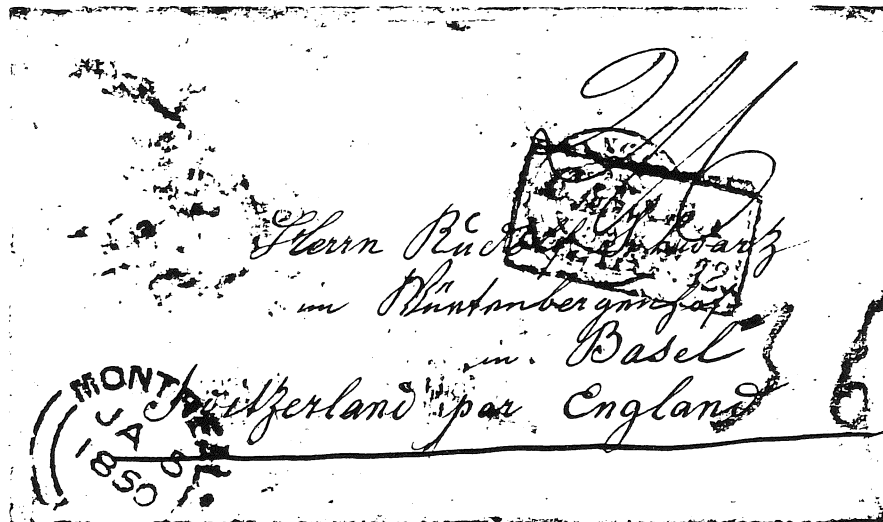 Herrn Rudolf Schwartz
im Würtenbergerhof
in Basel
Switzerland par England
MONTREAL
JA 5
1850